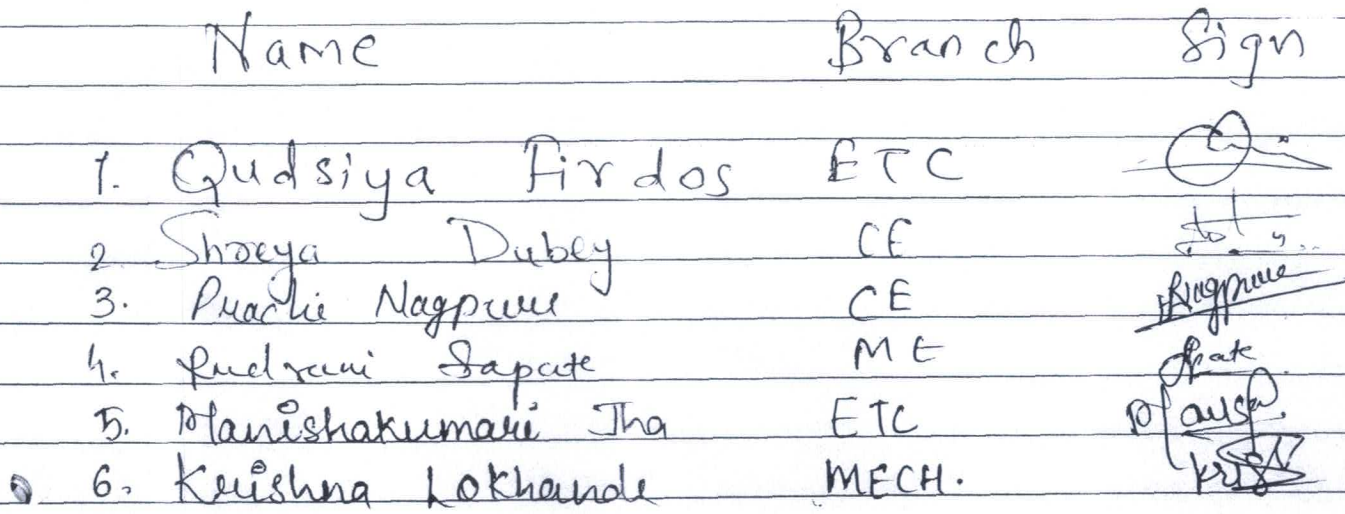 Name Branch Sign
1. Qudsiya Firdos ETC
2. Shreya Dubey CE
3. Prachi Nagpure CE Nagpure
4. Rudrani Sapate ME
5. Manishakumari Jha ETC
6. Krishna Lokhande MECH.